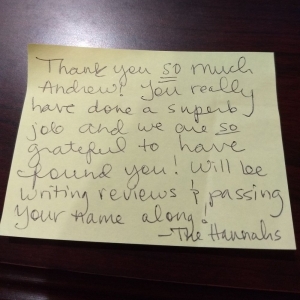 Thank you so much
Andrew! You really
have done a superb
job and we are so
grateful to have
found you! Will be
writing reviews & passing
your name along!
-The Hannahs